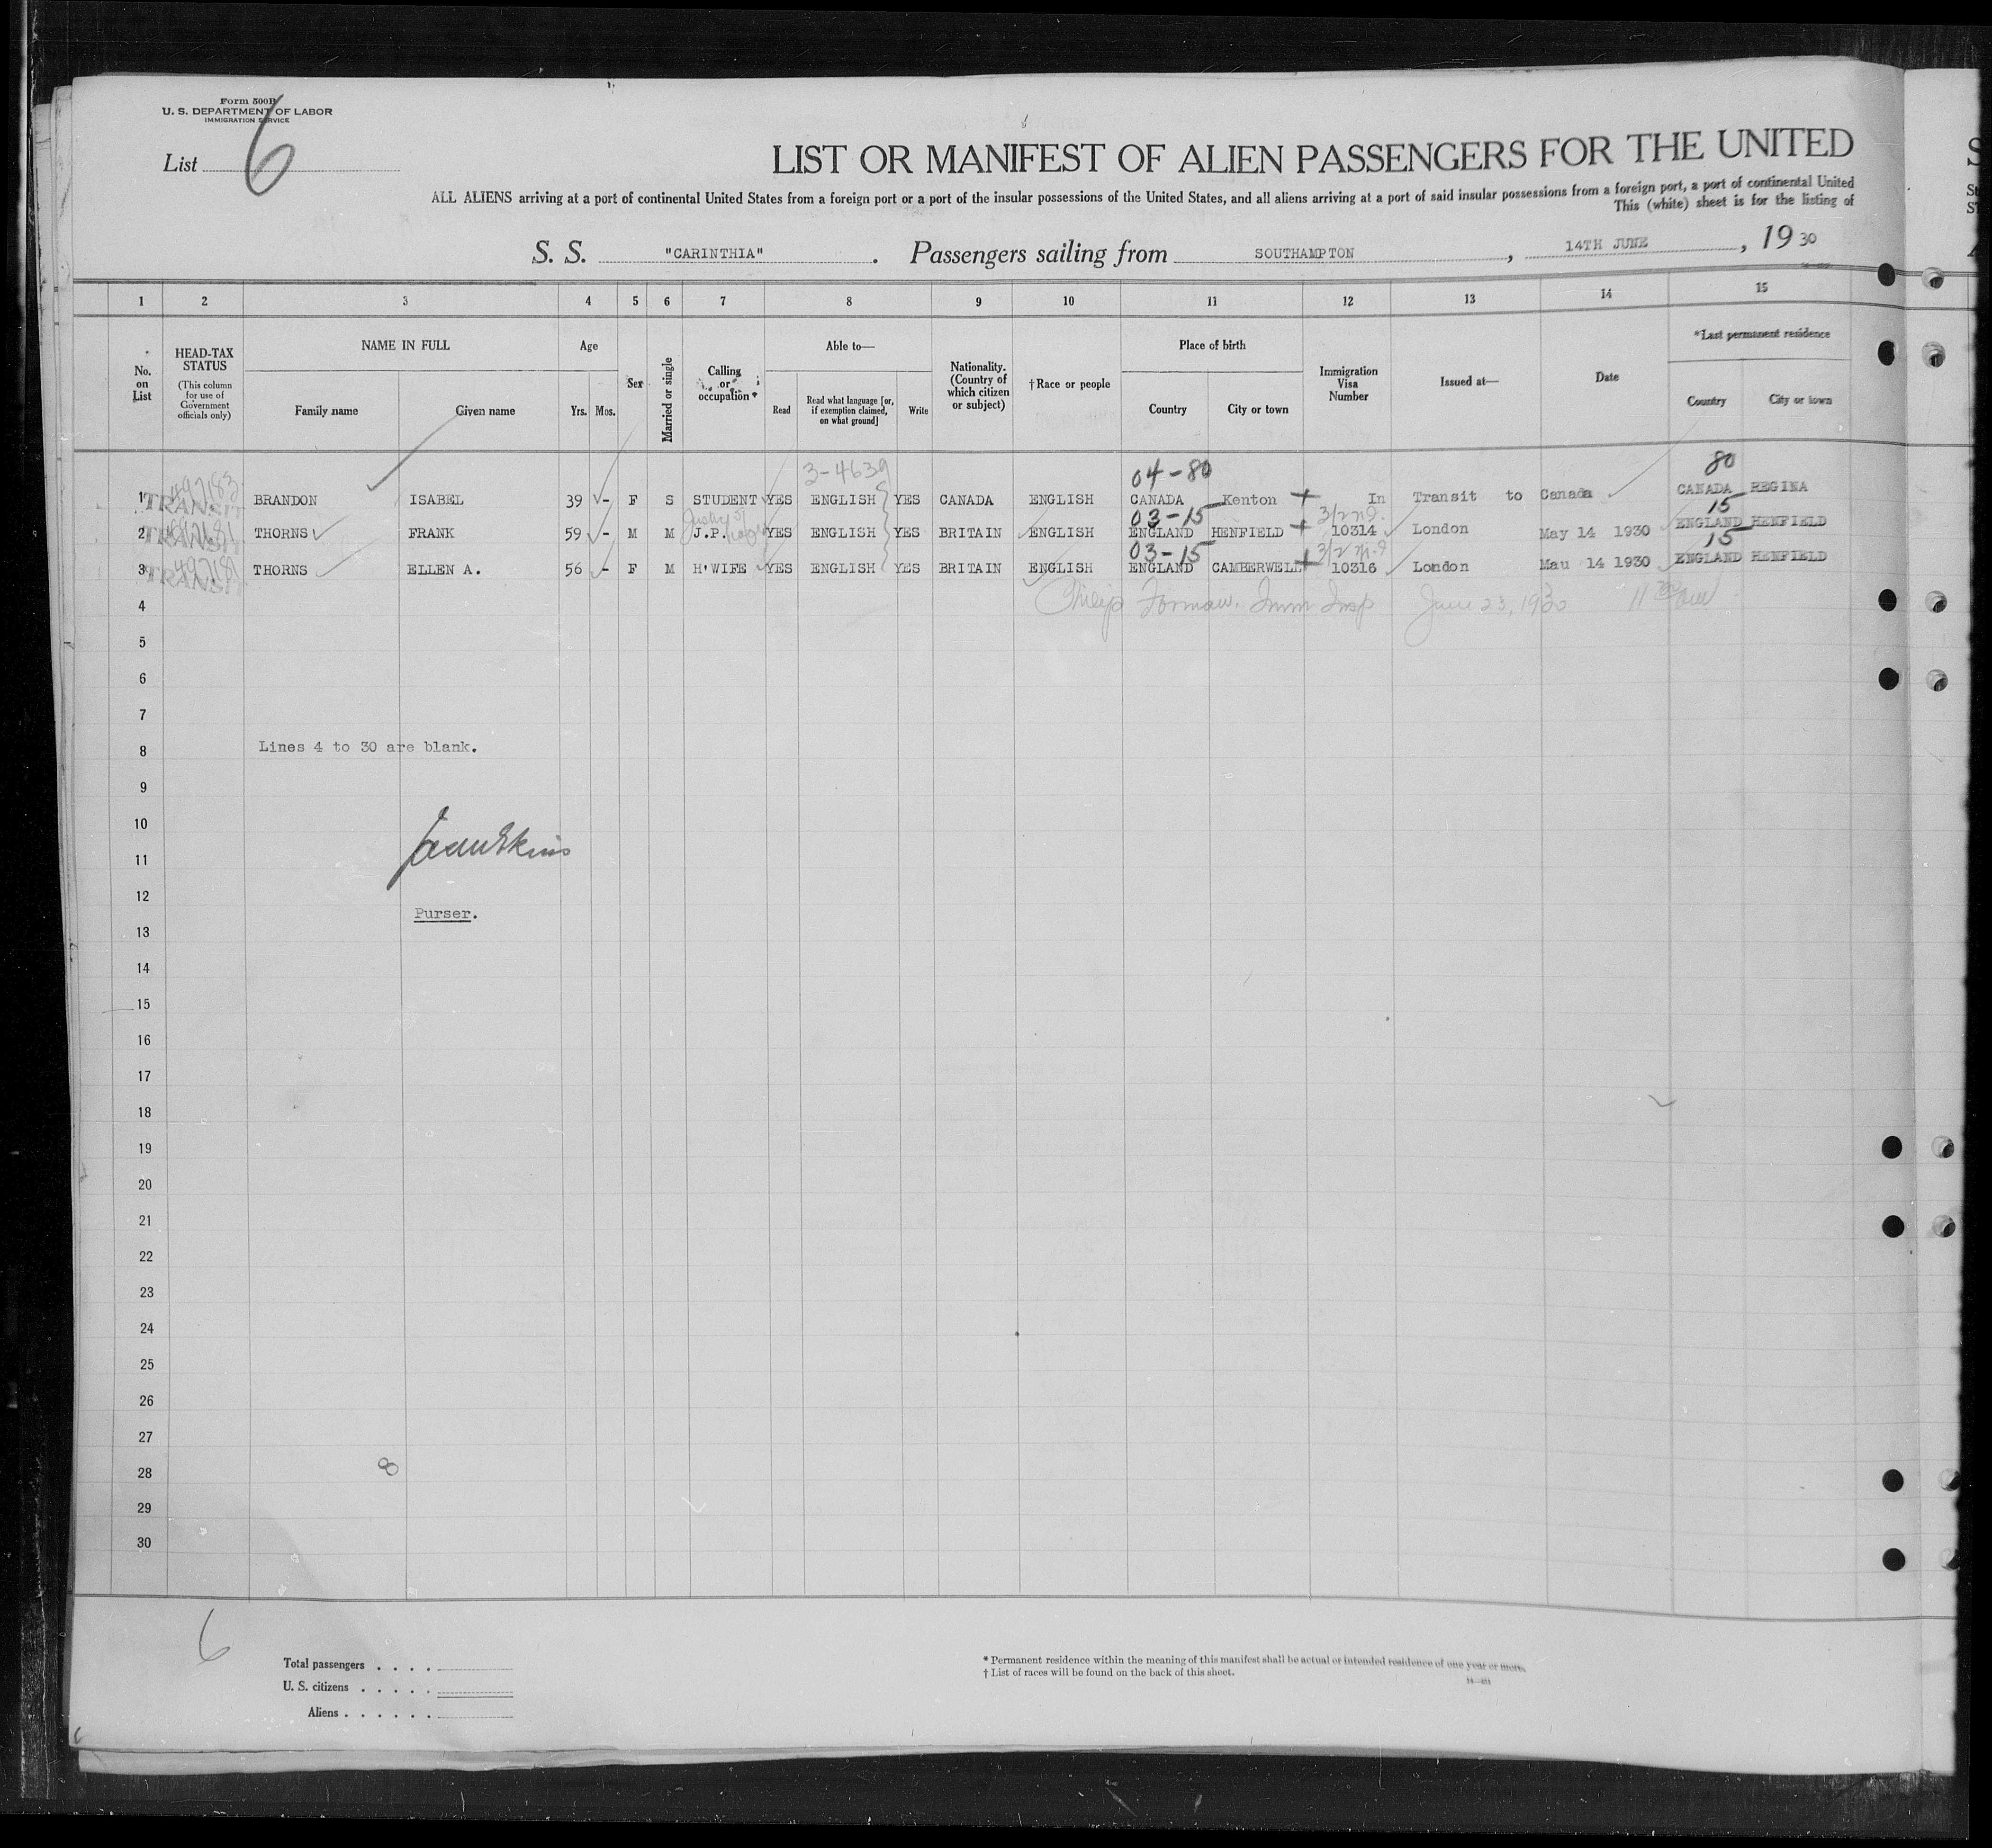 Form 500B
U. S. DEPARTMENT OF LABOR
IMMIGRATION SERVICE
List 6
LIST OR MANIFEST OF ALIEN PASSENGERS FOR THE UNITED
ALL ALIENS arriving at a port of continental United States from a foreign port or a port of the insular possessions of the United States, and all aliens arriving at a port of said insular possessions from a foreign port, a port of continental United
This (white) sheet is for the listing of
S. S. "CARINTHIA". Passengers sailing from SOUTHAMPTON, 14TH JUNE, 1930
1 2 3 4 5 6 7 8 9 10 11 12 13 14 15
No. on List
HEAD-TAX STATUS
(This column for use of Government officials only)
NAME IN FULL
Family name
Given name
Age
Yrs. Mos.
Sex
Married or single
Calling or occupation*
Able to—
Read
Read what language [or, if exemption claimed, on what ground]
Write
Nationality. (Country of which citizen or subject)
†Race or people
Place of birth
Country
City or town
Immigration Visa Number
Issued at—
Date
*Last permanent residence
Country
City or town
3-4639 04-80 80
1 TRANSIT BRANDON ISABEL 39 - F S STUDENT YES ENGLISH YES CANADA ENGLISH CANADA Kenton In Transit to Canada CANADA REGINA
03-15 15
2 TRANSIT THORNS FRANK 59 - M M J.P. YES ENGLISH YES BRITAIN ENGLISH ENGLAND HENFIELD 10314 London May 14 1930 ENGLAND HENFIELD
03-15 15
3 TRANSIT THORNS ELLEN A. 56 - F M H'WIFE YES ENGLISH YES BRITAIN ENGLISH ENGLAND CAMBERWELL 10316 London Mau 14 1930 ENGLAND HENFIELD
4 Philip Forman. Imm Insp June 23, 1930
5
6
7
8 Lines 4 to 30 are blank.
9
10
11
12
Purser.
13
14
15
16
17
18
19
20
21
22
23
24
25
26
27
28 8
29
30
6
Total passengers . . . .
U. S. citizens . . . . .
Aliens . . . . . .
* Permanent residence within the meaning of this manifest shall be actual or intended residence of one year or more.
† List of races will be found on the back of this sheet.